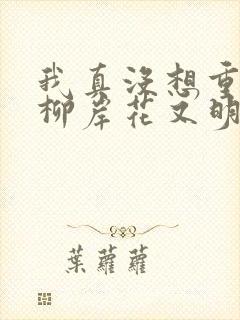 我真没想重
柳岸花又明
葉蘿蘿